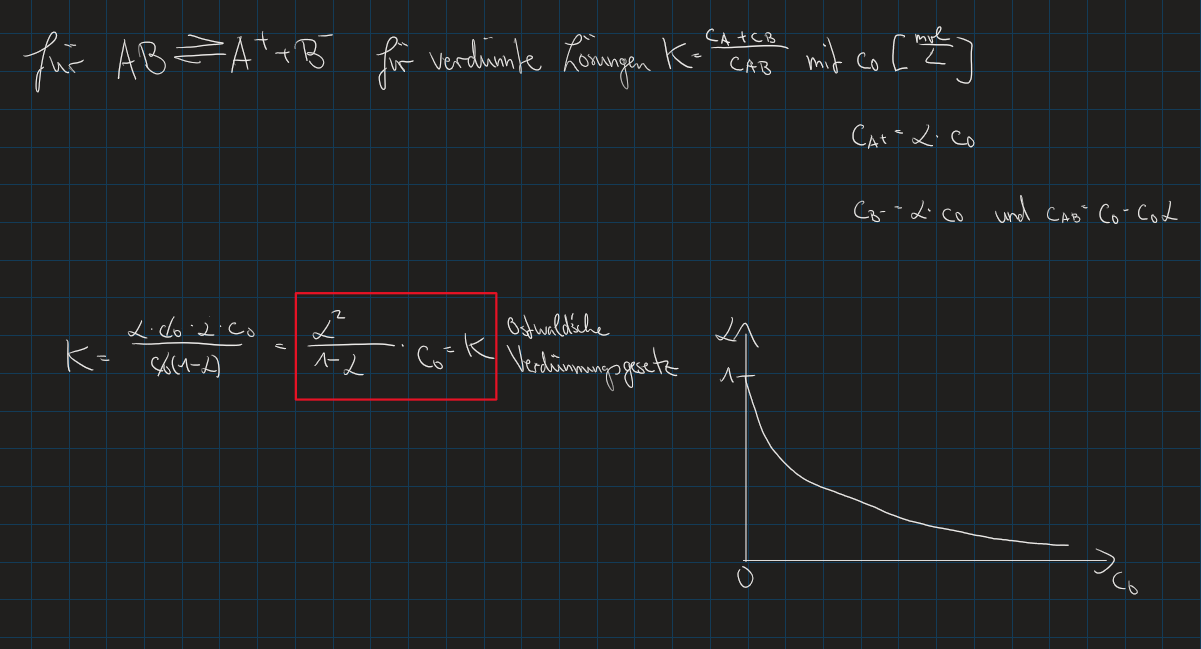 für AB ⇌ A⁺ + B⁻ für verdünnte Lösungen K = (c_A + c_B)/c_AB mit c₀ [mol/L]
c_A+ = α · c₀
c_B- = α · c₀ und c_AB = c₀ - c₀α
K = (α · c₀ · α · c₀)/(c₀(1-α)) = α²/(1-α) · c₀ = K Ostwaldsche
Verdünnungsgesetz
α
1
0
c₀